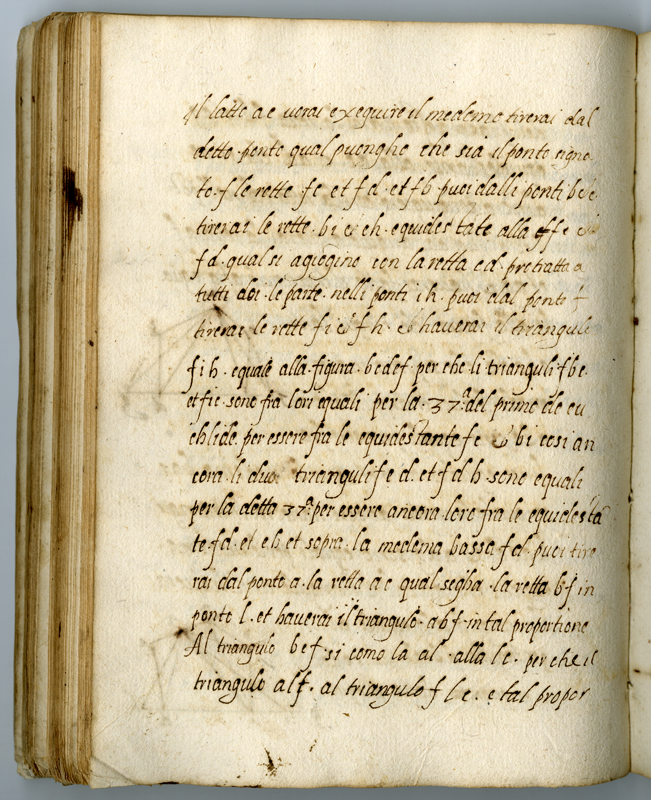 il latto a e vorai exequire il medemo tirerai dal
detto ponto qual puongho che sia il ponto signa
to · f · le rette · fe et f d · et f b · puoi dalli ponti b &
tirerai le rette · b i & e h · equidestate alla f e &
f d · qual si agiogino con la retta c d · pretratta a
tutti doi · le parte · nelli ponti i h · puoi dal ponto f
tirerai le rette f i & f h · & haverai il triangulo
f i h · equale alla · figura · b c d e f per che li trianguli f b e ·
et f i e · sono fra lori equali per la · 37ª del primo de eu
chlide per essere fra le equidestante f e & b i cosi an
cora · li duoi trianguli f e d · et f d h · sono equali
per la detta 37ª per essere ancora loro fra le equidesta
te · f d · et e h · et sopra · la medema bassa f d · puoi tire
rai dal ponto a · la retta a e qual segha · la retta b f in
ponto l · et haverai il triangulo · a b f · in tal proportione
Al triangulo b e f · si como la al · alla l e · per che il
triangulo a l f · al triangulo f l e · e tal propor